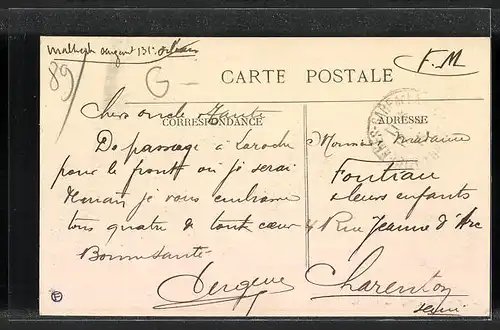 89
F.M
G
CARTE POSTALE
CORRESPONDANCE
ADRESSE
Cher oncle
De passage à Laroche
pour le front où je serai
demain je vous embrasse
tous quatre de tout cœur
Bonne santé
Monsieur Madame
& leurs enfants
4 Rue Jeanne d'Arc
Charenton
Seine